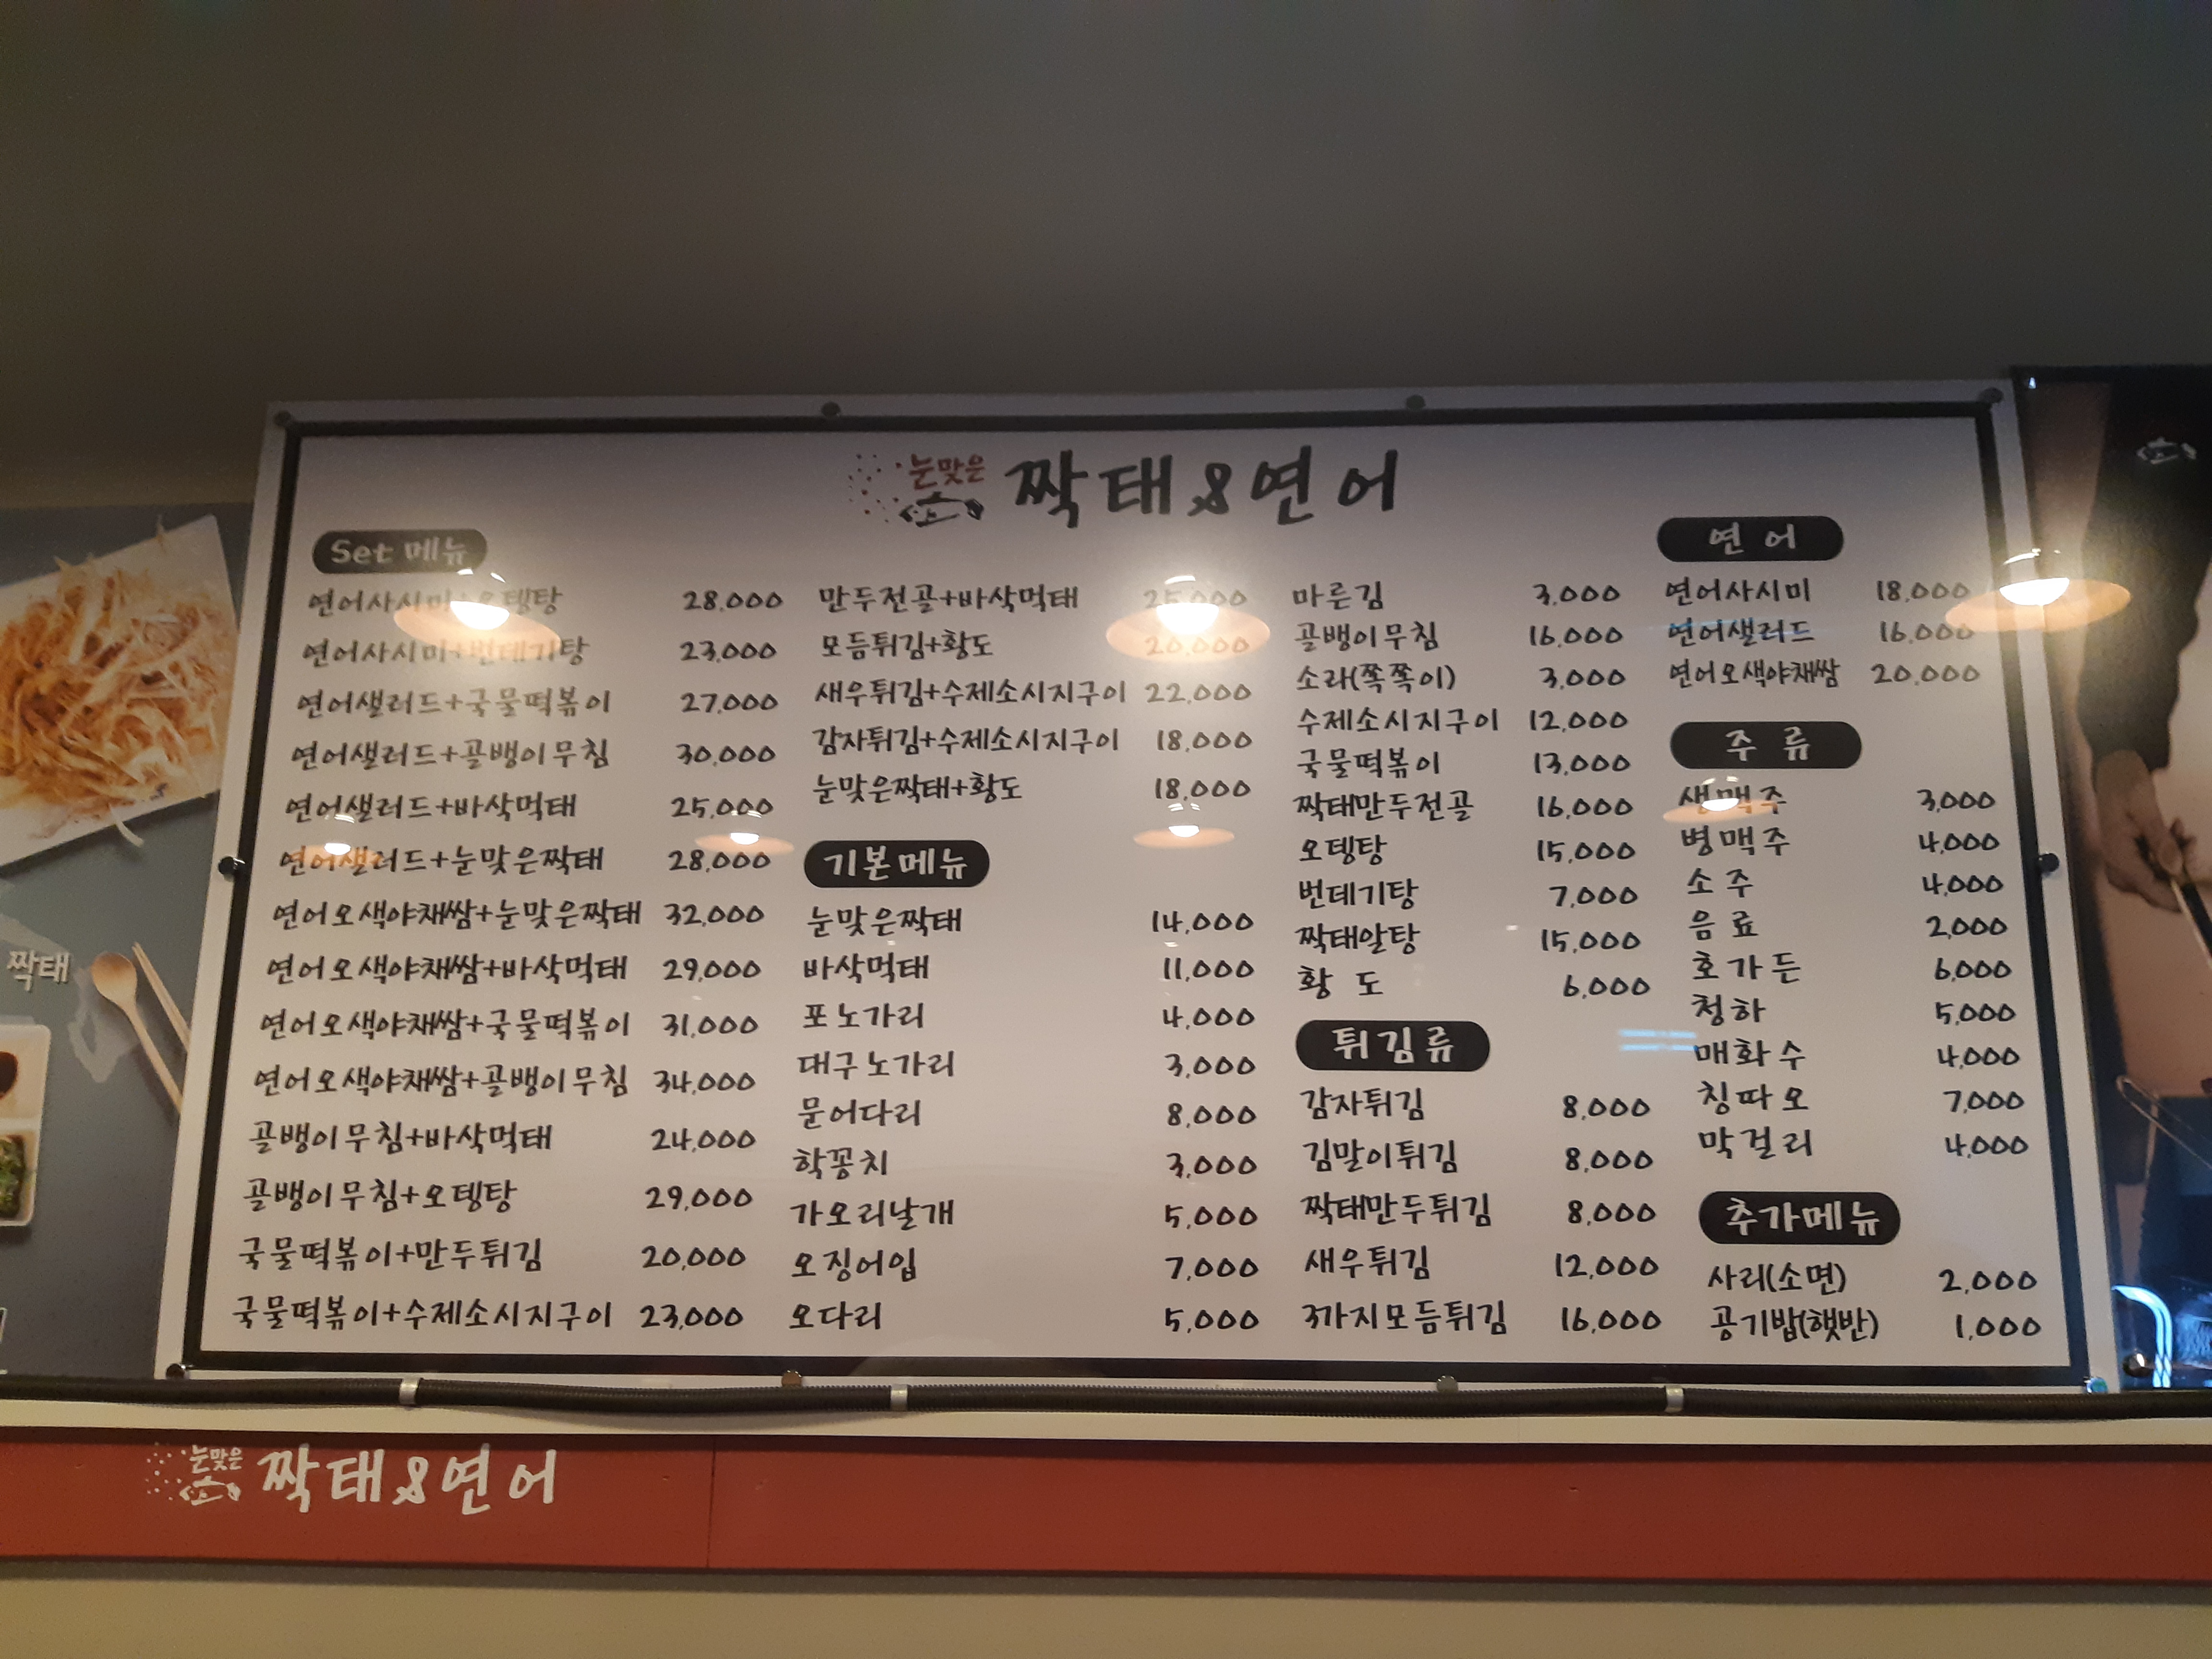 눈맞은 짝태&연어
Set 메뉴
연어사시미+오뎅탕 28,000
연어사시미+번데기탕 23,000
연어샐러드+국물떡볶이 27,000
연어샐러드+골뱅이무침 30,000
연어샐러드+바삭먹태 25,000
연어샐러드+눈맞은짝태 28,000
연어오색야채쌈+눈맞은짝태 32,000
연어오색야채쌈+바삭먹태 29,000
연어오색야채쌈+국물떡볶이 31,000
연어오색야채쌈+골뱅이무침 34,000
골뱅이무침+바삭먹태 24,000
골뱅이무침+오뎅탕 29,000
국물떡볶이+만두튀김 20,000
국물떡볶이+수제소시지구이 23,000
만두전골+바삭먹태 25,000
모듬튀김+황도 20,000
새우튀김+수제소시지구이 22,000
감자튀김+수제소시지구이 18,000
눈맞은짝태+황도 18,000
기본메뉴
눈맞은짝태 14,000
바삭먹태 11,000
포노가리 4,000
대구노가리 3,000
문어다리 8,000
학꽁치 3,000
가오리날개 5,000
오징어입 7,000
오다리 5,000
마른김 3,000
골뱅이무침 16,000
소라(쪽쪽이) 3,000
수제소시지구이 12,000
국물떡볶이 13,000
짝태만두전골 16,000
오뎅탕 15,000
번데기탕 7,000
짝태알탕 15,000
황 도 6,000
튀김류
감자튀김 8,000
김말이튀김 8,000
짝태만두튀김 8,000
새우튀김 12,000
3가지모듬튀김 16,000
연 어
연어사시미 18,000
연어샐러드 16,000
연어오색야채쌈 20,000
주 류
생맥주 3,000
병맥주 4,000
소 주 4,000
음 료 2,000
호가든 6,000
청하 5,000
매화수 4,000
칭따오 7,000
막걸리 4,000
추가메뉴
사리(소면) 2,000
공기밥(햇반) 1,000
짝태
눈맞은 짝태&연어